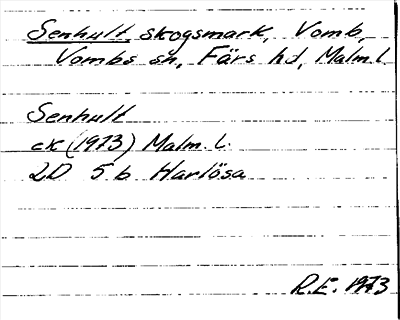 Senhult, skogsmark, Vomb,
Vombs sn, Färs hd, Malm.l.
Senhult
ek (1973) Malm.l.
2D 5b Harlösa
R.E. 1973